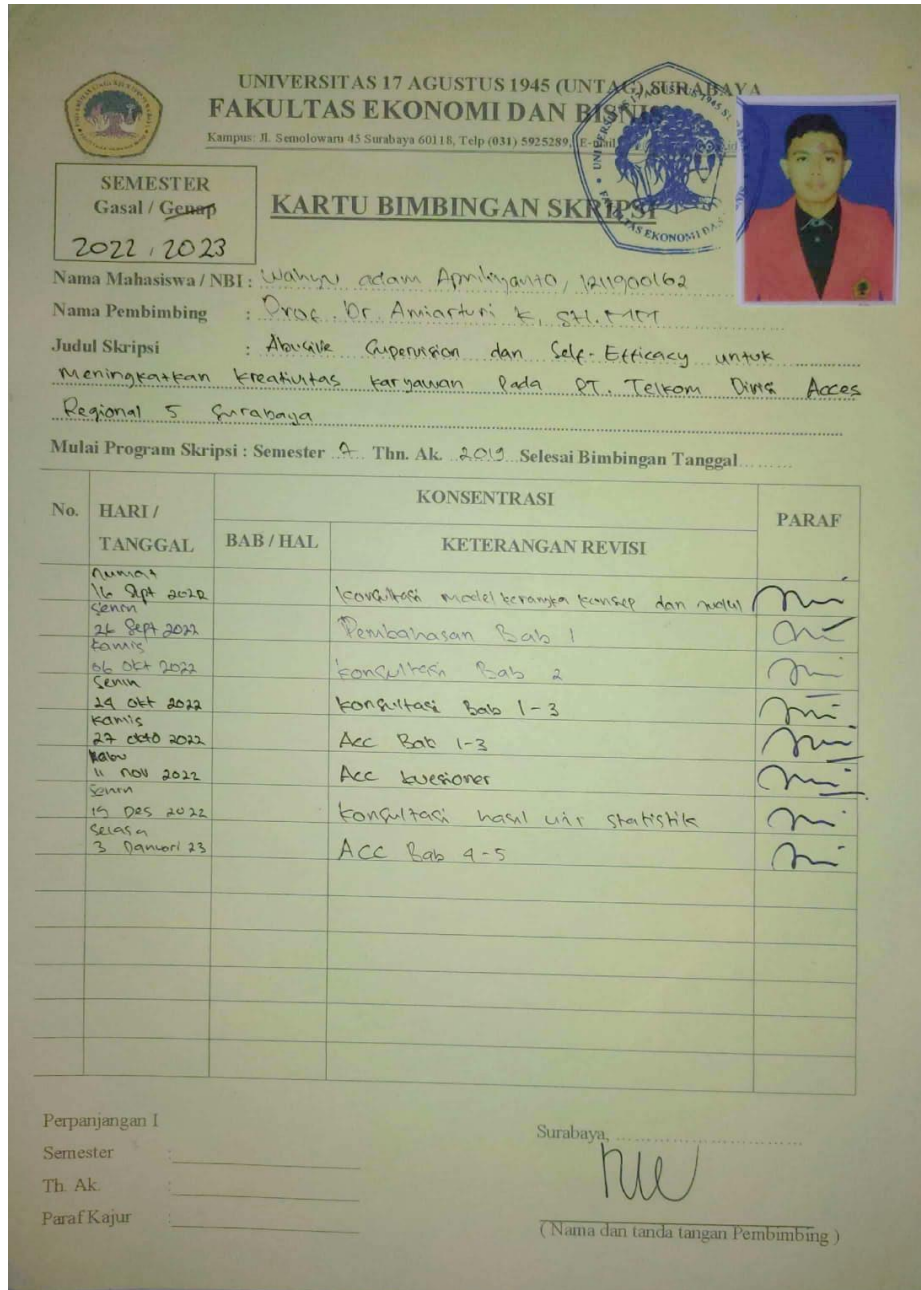 UNIVERSITAS 17 AGUSTUS 1945 (UNTAG) SURABAYA
FAKULTAS EKONOMI DAN BISNIS
Kampus: Jl. Semolowaru 45 Surabaya 60118, Telp (031) 5925289, E-mail
SEMESTER
Gasal / Genap
2022 / 2023
KARTU BIMBINGAN SKRIPSI
Nama Mahasiswa / NBI : Wahyu adam Apriliyanto, 1211900162
Nama Pembimbing : Prof. Dr. Amiartuti K, SH. MM
Judul Skripsi : Abusive Supervision dan Self-Efficacy untuk
Meningkatkan kreativitas karyawan Pada PT. Telkom Divisi Acces
Regional 5 Surabaya
Mulai Program Skripsi : Semester 7 Thn. Ak. 2019 Selesai Bimbingan Tanggal
No. HARI / TANGGAL KONSENTRASI PARAF
BAB / HAL KETERANGAN REVISI
Jumat
16 Sept 2022 konsultasi model kerangka konsep dan judul
Senin
26 Sept 2022 Pembahasan Bab 1
Kamis
06 Okt 2022 konsultasi Bab 2
Senin
24 Okt 2022 konsultasi Bab 1-3
Kamis
27 okto 2022 Acc Bab 1-3
Rabu
11 nov 2022 Acc kuesioner
Senin
19 Des 2022 konsultasi hasil uji statistik
Selasa
3 Januari 23 ACC Bab 4-5
Perpanjangan I
Semester :
Th. Ak. :
Paraf Kajur :
Surabaya,
( Nama dan tanda tangan Pembimbing )